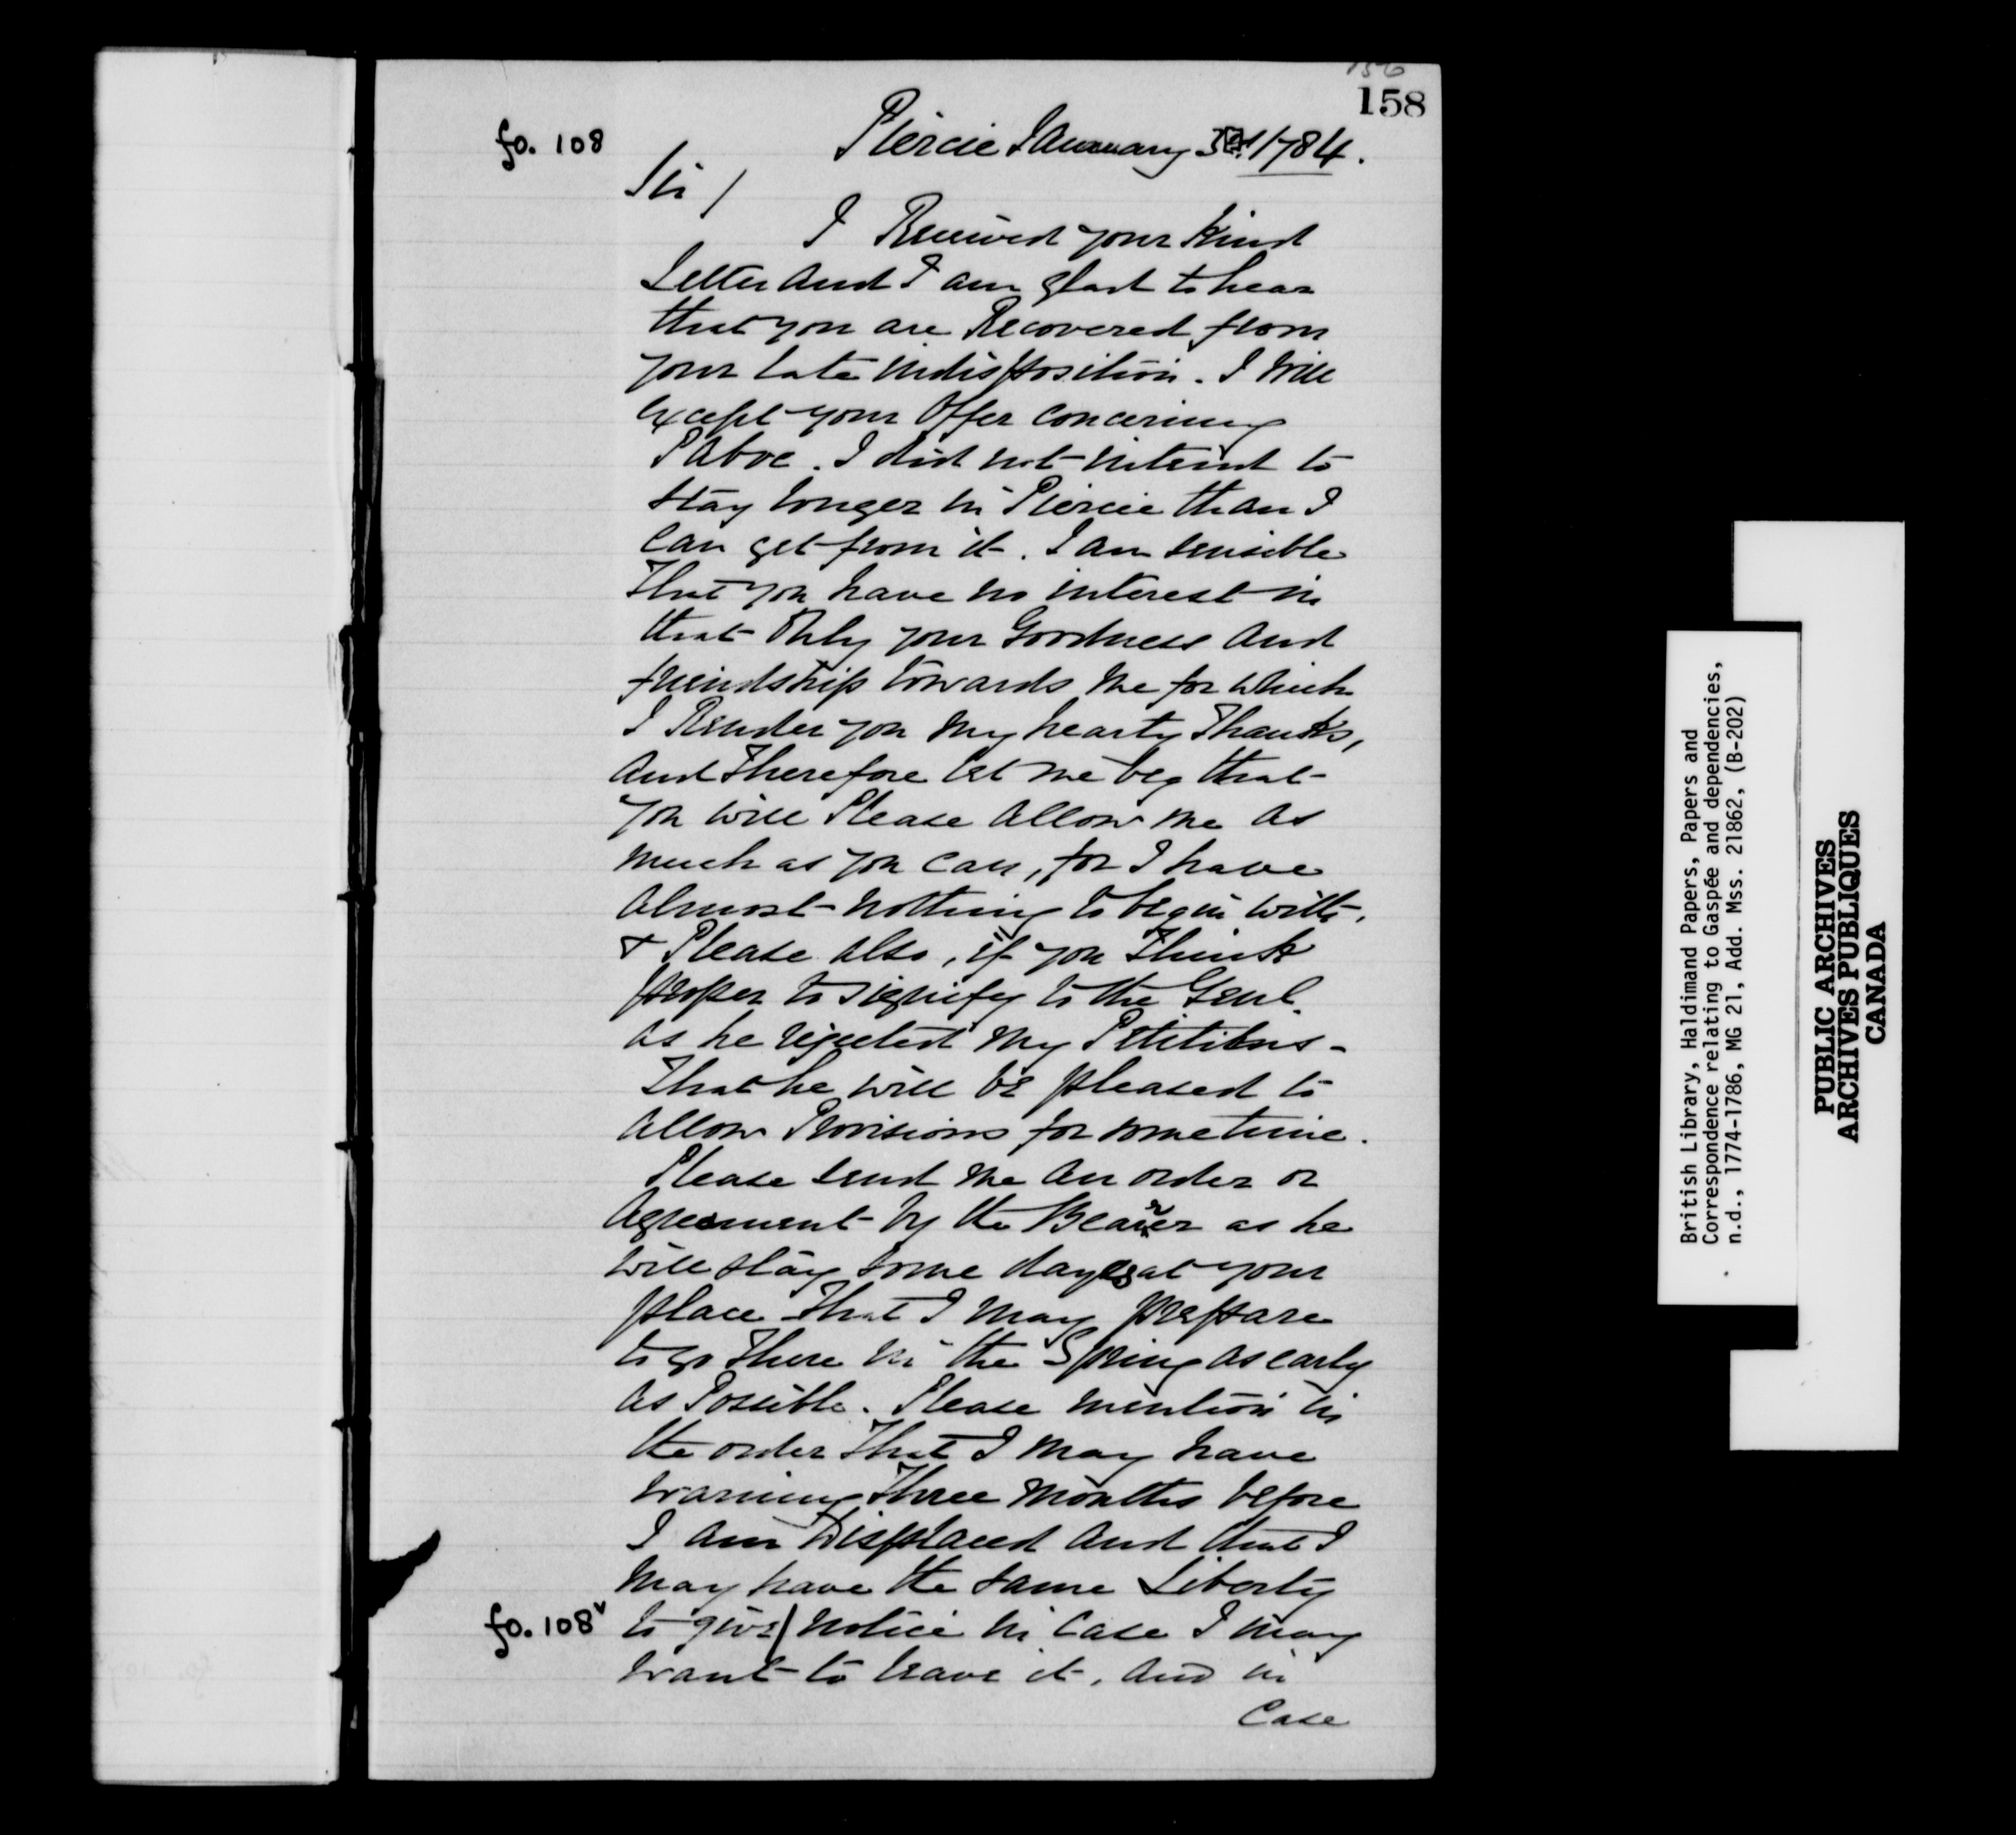 156
158
fo. 108
Piercie January 3d 1784.
Sir /
I Received your Kind
Letter and I am glad to hear
that you are Recovered from
your late indisposition. I will
except your Offer concerning
Paboc. I did not intend to
stay longer in Piercie than I
can get from it. I am sensible
that you have no interest in
that Only your Goodness and
friendship towards me for which
I Render you my hearty Thanks,
and Therefore let me beg that
you will Please allow me as
much as you can, for I have
almost nothing to begin with.
& Please also, if you Think
proper to signify to the Genl.
as he rejected my Petitions -
That he will be pleased to
allow Provisions for sometime.
Please send me an order or
Agreement by the Bearer as he
will stay some days at your
place That I may prepare
to go There in the Spring as early
as Possible. Please mention in
the order That I may have
warning Three months before
I am Displaced and that I
may have the same Liberty
fo. 108v to give/ notice in Case I may
want to leave it, and in
Case
British Library, Haldimand Papers, Papers and
Correspondence relating to Gaspée and dependencies,
n.d., 1774-1786, MG 21, Add. Mss. 21862, (B-202)
PUBLIC ARCHIVES
ARCHIVES PUBLIQUES
CANADA